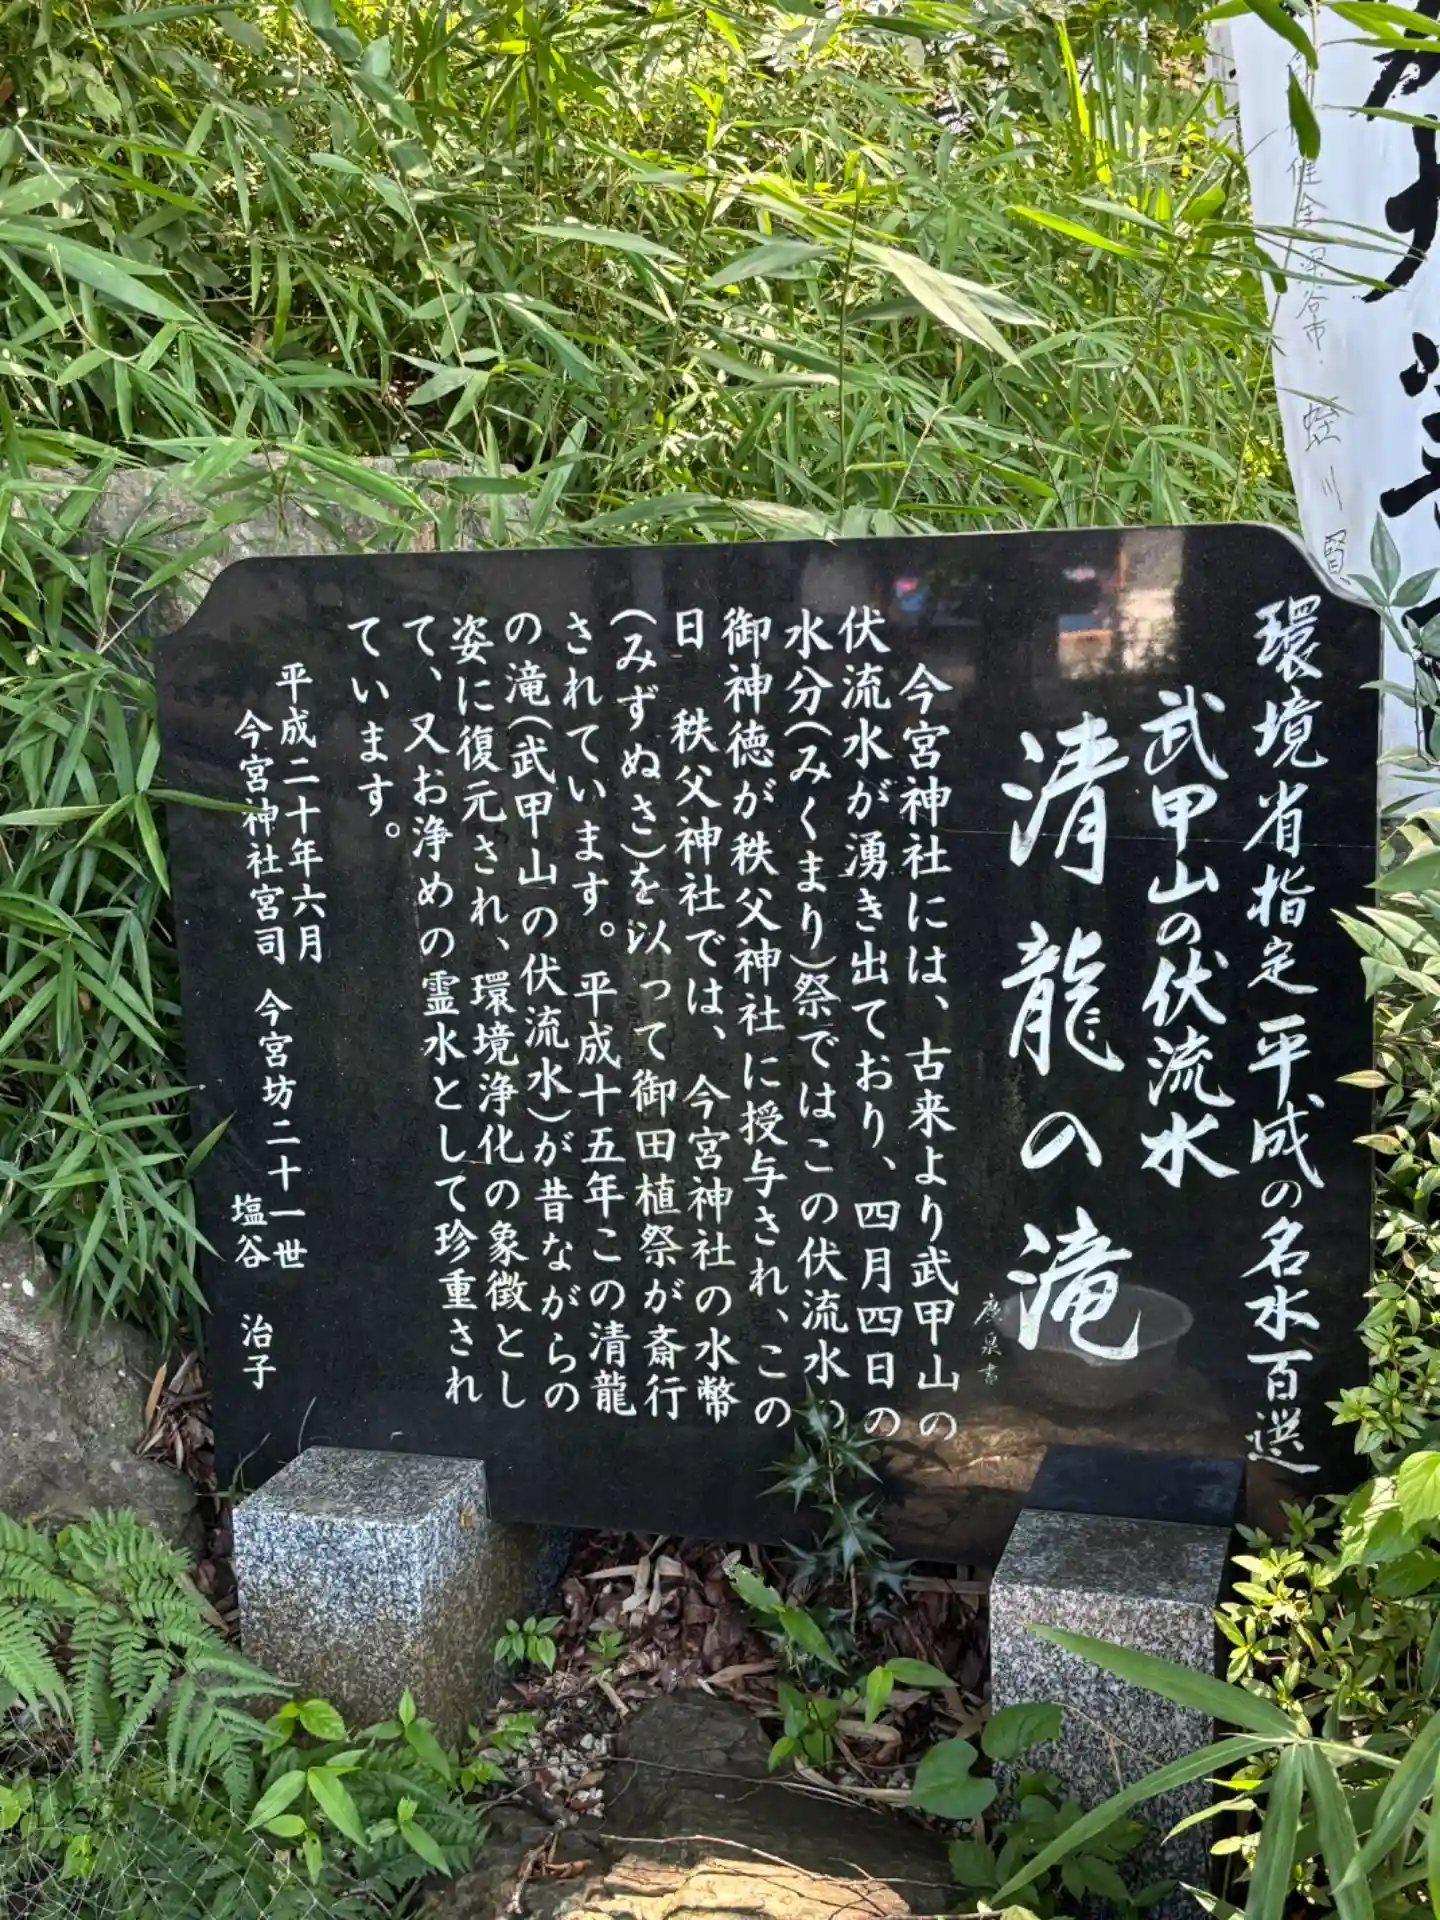 環境省指定 平成の名水百選
武甲山の伏流水
清龍の滝
廣泉書
今宮神社には、古来より武甲山の
伏流水が湧き出ており、四月四日の
水分(みくまり)祭ではこの伏流水の
御神徳が秩父神社に授与され、この
日 秩父神社では、今宮神社の水幣
(みずぬさ)を以って御田植祭が斎行
されています。平成十五年この清龍
の滝(武甲山の伏流水)が昔ながらの
姿に復元され、環境浄化の象徴とし
て、又お浄めの霊水として珍重され
ています。
平成二十年六月
今宮神社宮司 今宮坊二十一世
塩谷 治子
健全 深谷市